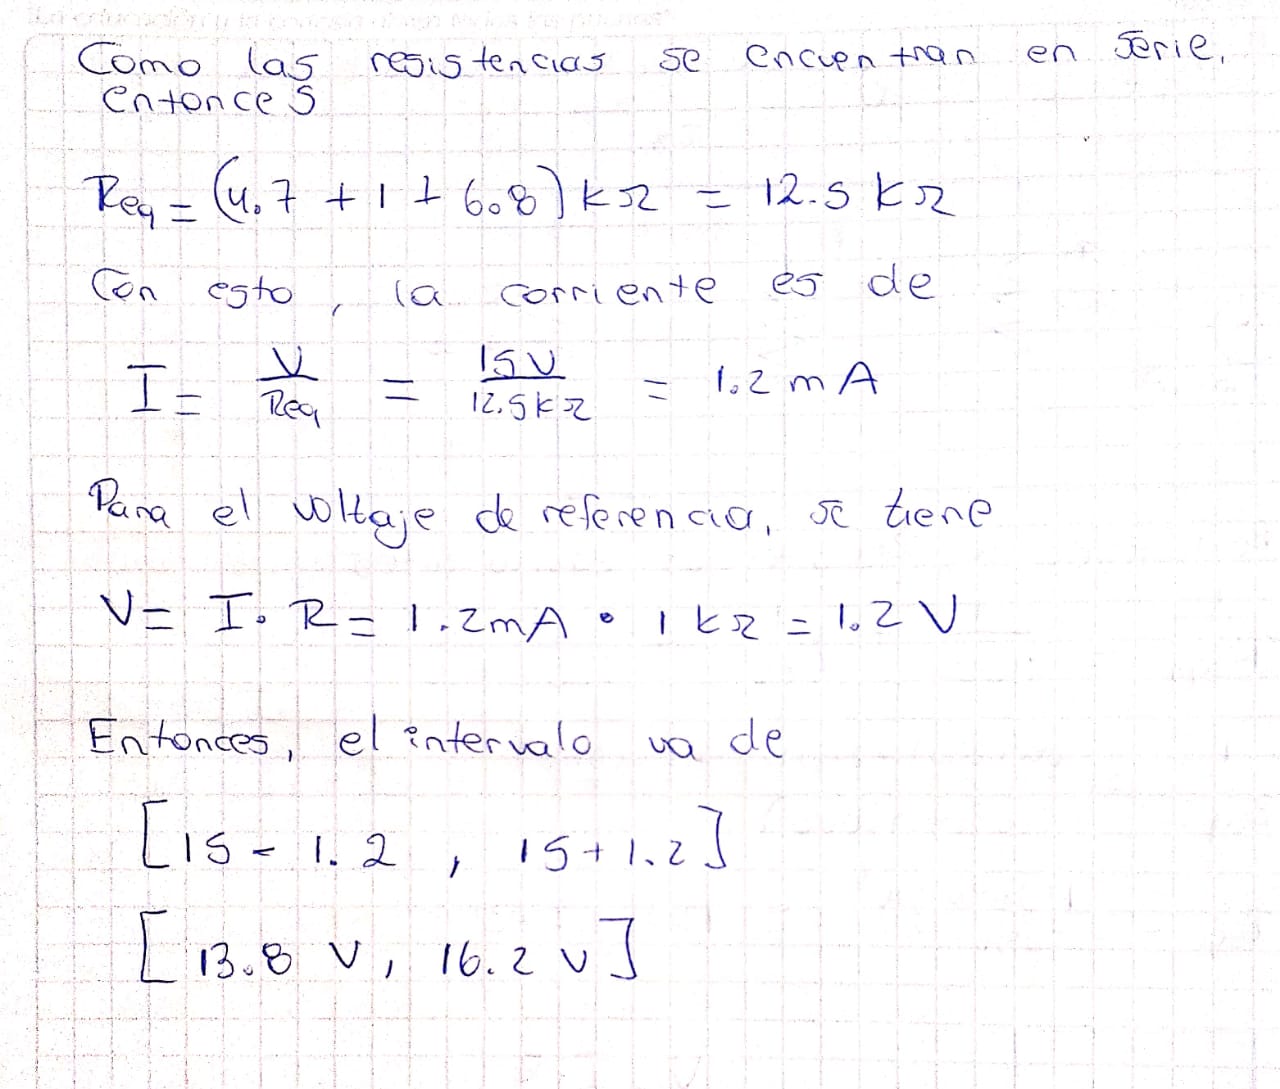 Como las resistencias se encuentran en serie,
entonces
Req = (4.7 + 1 + 6.8) kΩ = 12.5 kΩ
Con esto, la corriente es de
I = V/Req = 15V/12.5kΩ = 1.2 mA
Para el voltaje de referencia, se tiene
V = I · R = 1.2mA · 1 kΩ = 1.2 V
Entonces, el intervalo va de
[15 - 1.2 , 15 + 1.2]
[13.8 V, 16.2 V]